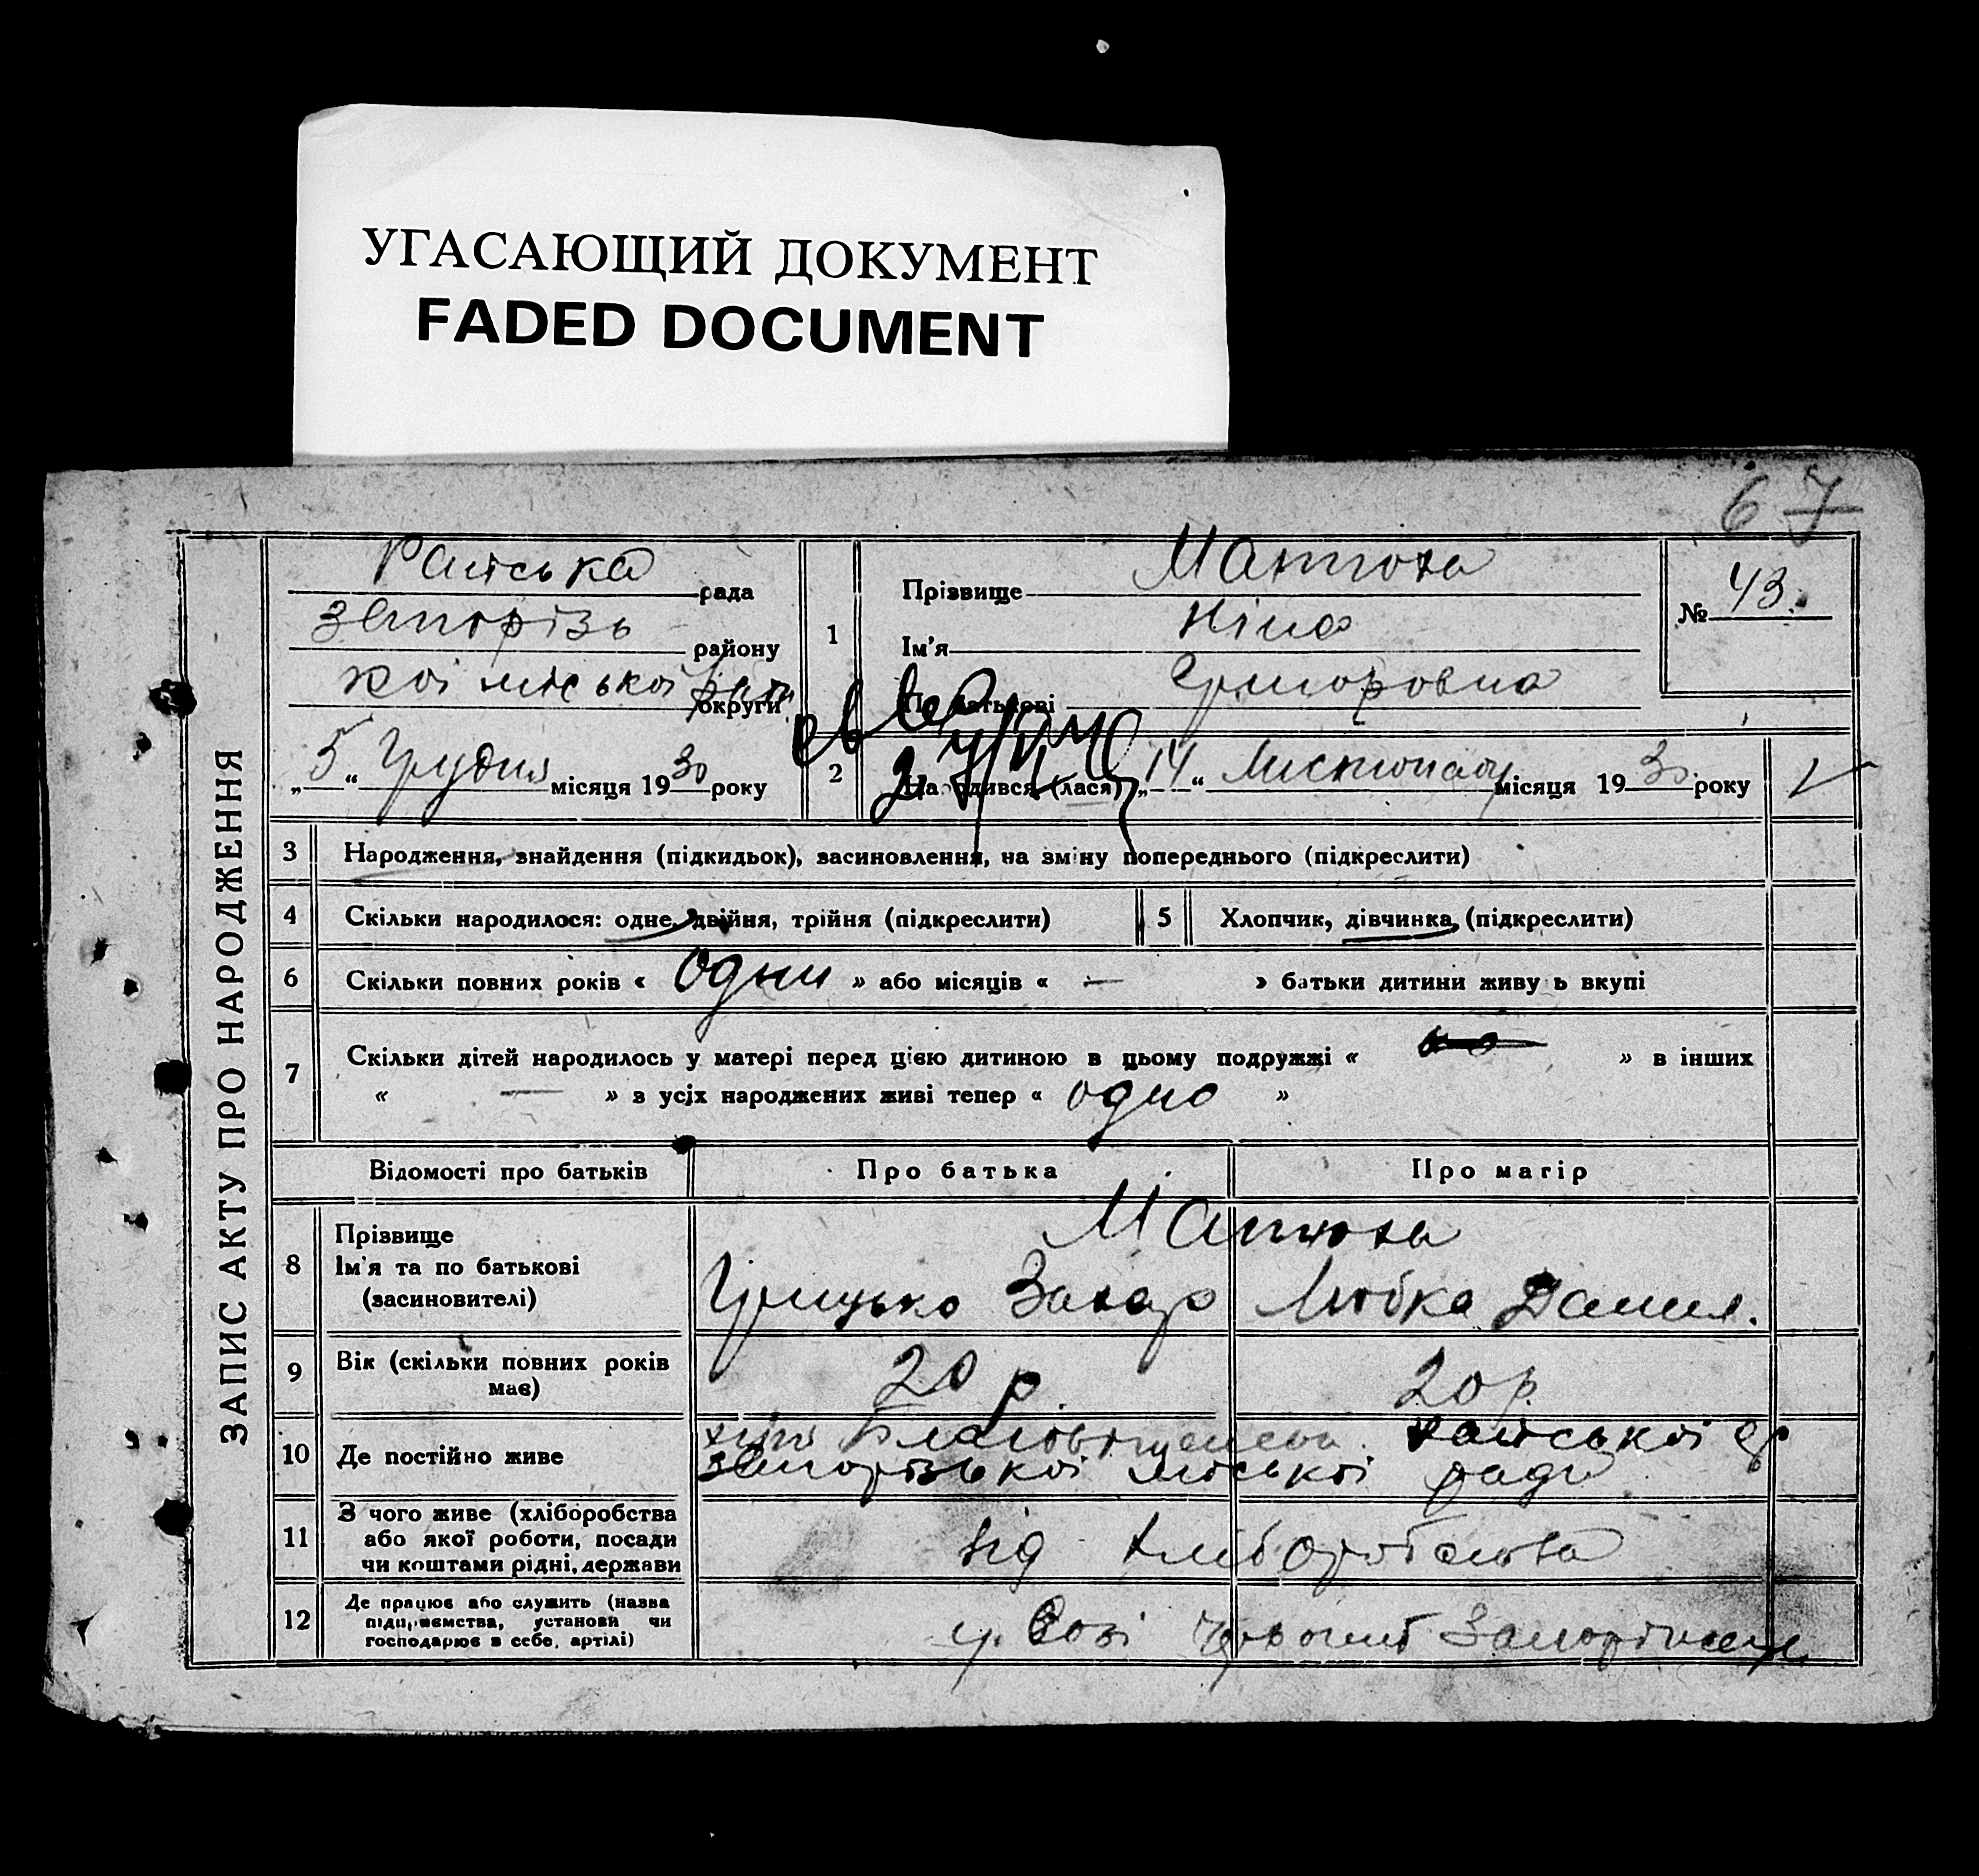 УГАСАЮЩИЙ ДОКУМЕНТ
FADED DOCUMENT
67
ЗАПИС АКТУ ПРО НАРОДЖЕННЯ
рада
Запорізь району
кої міської ради округи
„5“ Грудня місяця 1930 року
1
Прізвище Матюха
Ім'я Ніна
По батькові Григоровна
№ 43.
2
Народився (лася) „14“ Листопаду місяця 1930 року
3 Народження, знайдення (підкидьок), засиновлення, на зміну попереднього (підкреслити)
4 Скільки народилося: одне, двійня, трійня (підкреслити) 5 Хлопчик, дівчинка, (підкреслити)
6 Скільки повних років « Один » або місяців « — » батьки дитини живуть вкупі
7 Скільки дітей народилось у матері перед цією дитиною в цьому подружжі « » в інших
« — » з усіх народжених живі тепер « одно »
Відомості про батьків Про батька Про матір
8 Прізвище
Ім'я та по батькові
(засиновителі)
Матюха
Грицько Захар Любка Данил.
9 Вік (скільки повних років
має)
20 р 20 р.
10 Де постійно живе
Благовіщенськ.
Запорізької міської ради
11 З чого живе (хліборобства
або якої роботи, посади
чи коштами рідні, держави
від хліборобства
12 Де працює або служить (назва
підприємства, установи чи
господарює в себе, артілі)
у Созі